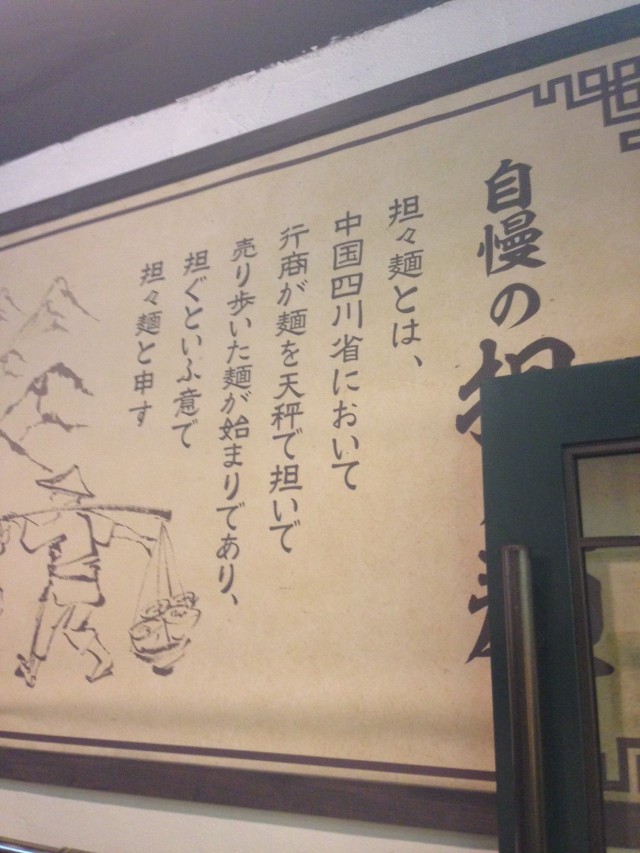 自慢の担
担々麺とは、
中国四川省において
行商が麺を天秤で担いで
売り歩いた麺が始まりであり、
担ぐといふ意で
担々麺と申す